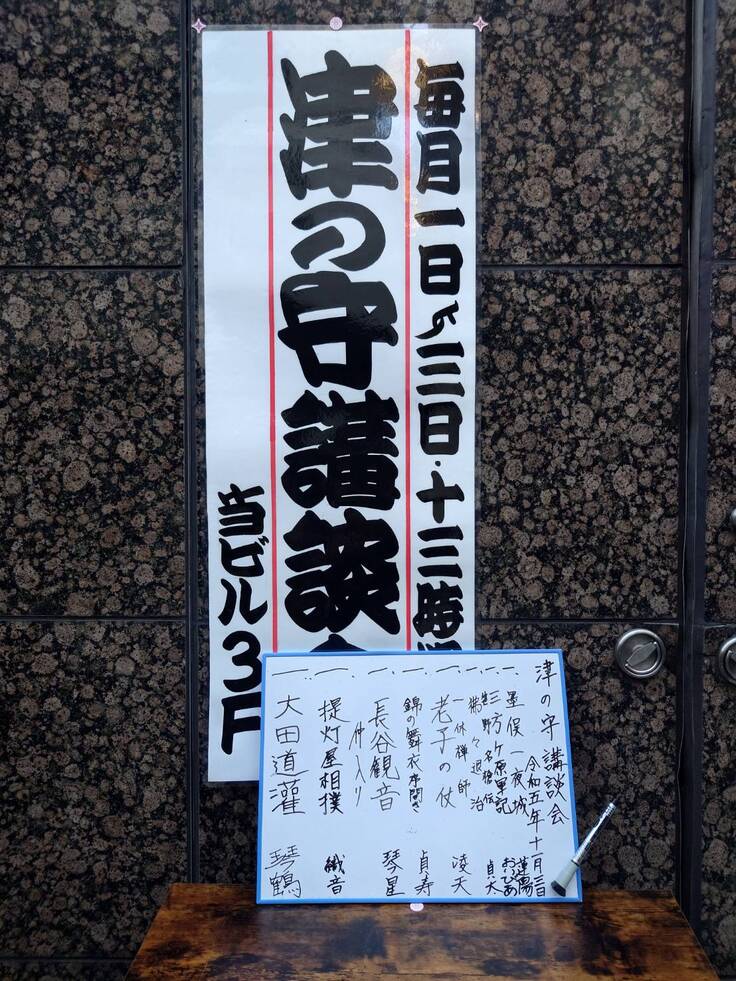 毎月一日〜三日・十三時
津の守講談会
当ビル3F
津の守講談会
令和五年十一月三日
一、墨俣一夜城
一、三方ヶ原軍記
一、笹野名槍伝
狒々退治
一、一休禅師
老子の杖 凌天
一、錦の舞衣序開き 貞寿
一、長谷観音 琴星
仲入り
一、提灯屋相撲 織音
一、大田道灌 琴鶴